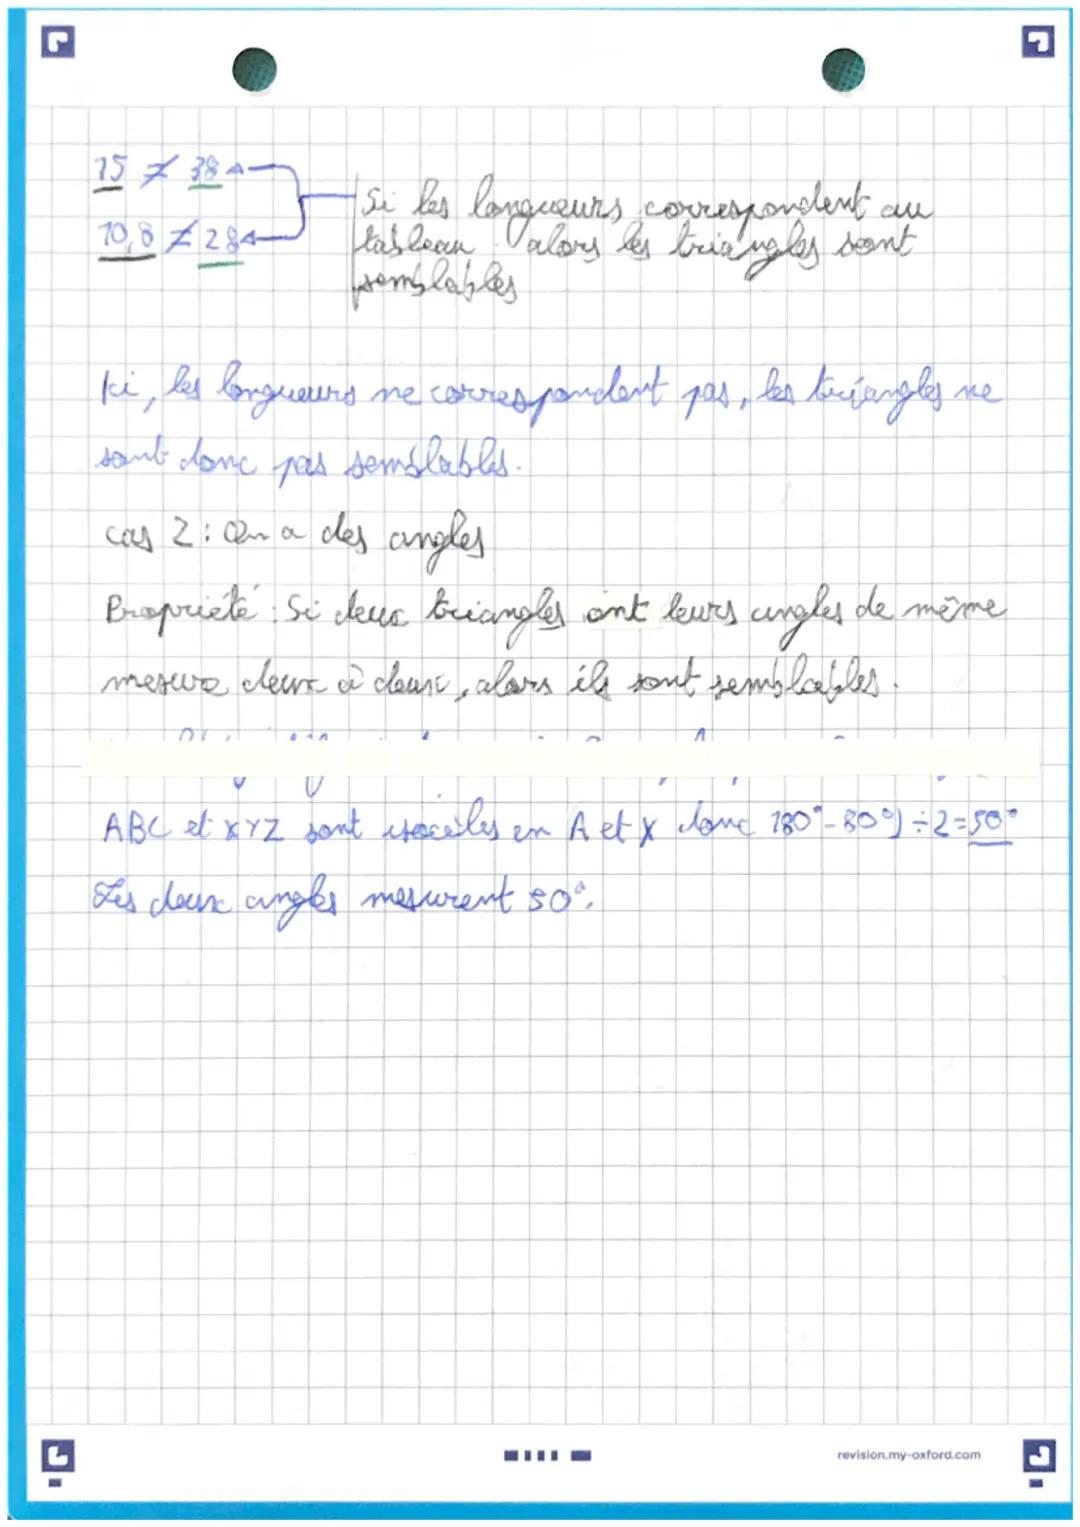 15 ≠ 38
10,8 ≠ 28
Si les longueurs correspondent au
tableau alors les triangles sont
semblables
Ici, les longueurs ne correspondent pas, les triangles ne
sont donc pas semblables.
cas 2 : On a des angles
Propriété : Si deux triangles ont leurs angles de même
mesure deux à deux, alors ils sont semblables.
ABC et XYZ sont isocèles en A et X donc 180°-80°) ÷2=50°
Les deux angles mesurent 50°.
revision.my-oxford.com